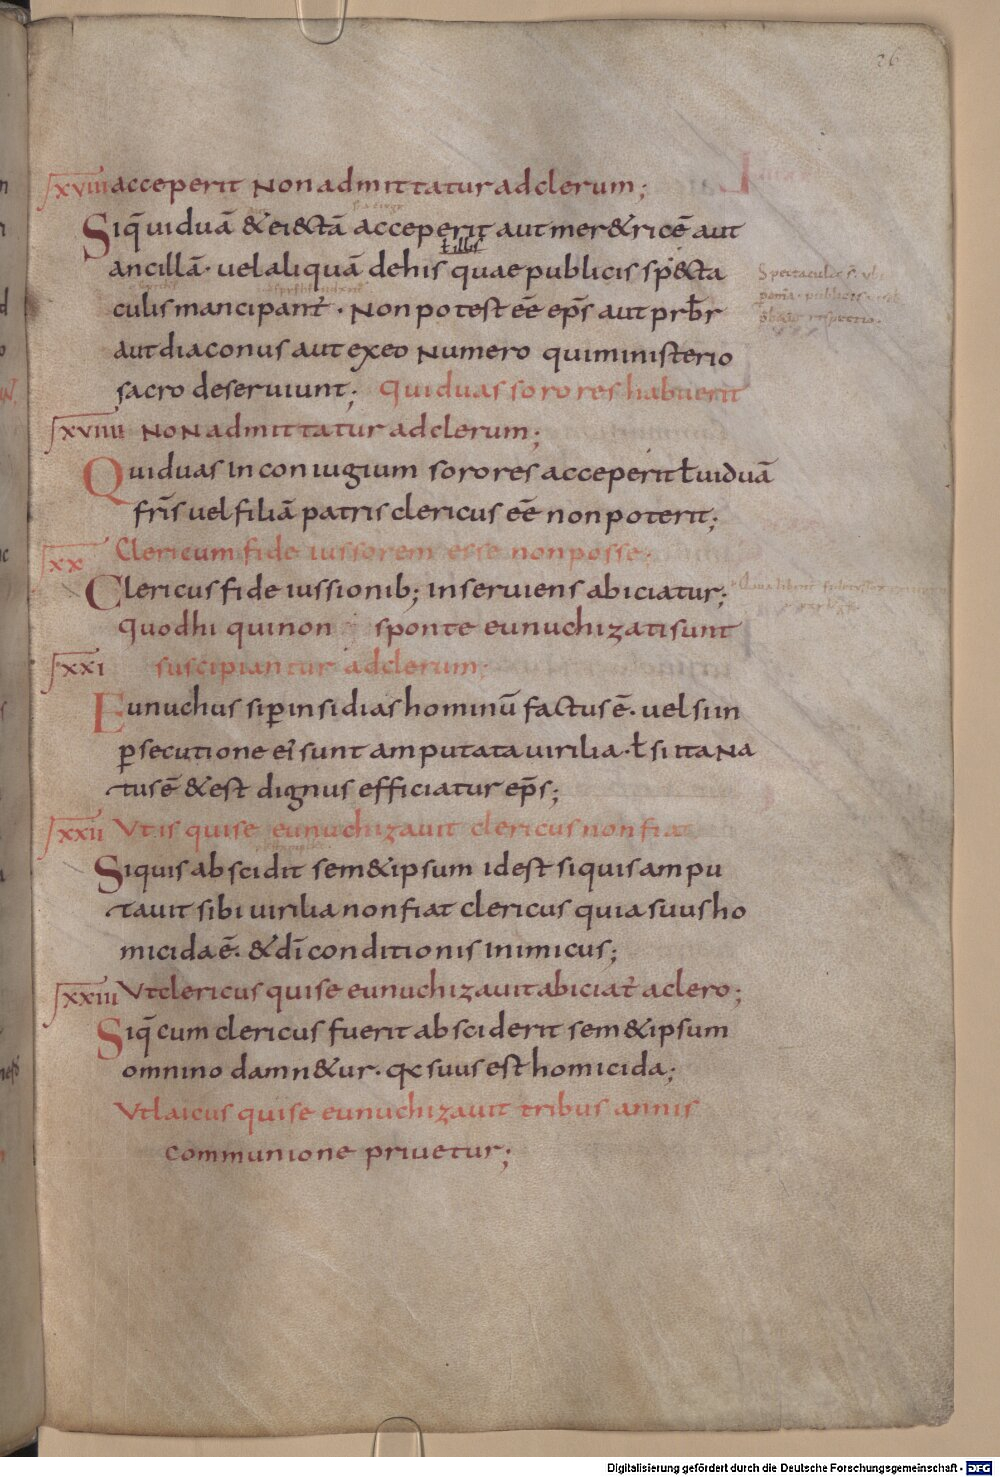 26
xviii acceperit Non admittatur ad clerum;
Siq̄ uiduā &ei&ctā acceperit aut mer&ricē aut
ƚ illis
ancillā· uel aliquā de his quae publicis sp&cta
culis mancipant̄· Non potest eē ep̄s aut prb̄r
aut diaconus aut ex eo Numero qui ministerio
sacro deseruiunt; Qui duas sorores habuerit
xviiii Non admittatur ad clerum;
Qui duas in coniugium sorores acceperit ƚ uiduā
fr̄is uel filiā patris clericus eē non poterit;
xx Clericum fide iussorem esse non posse;
Clericus fide iussionib; inseruiens abiciatur;
quod hi qui non sponte eunuchizati sunt
xxi suscipiantur ad clerum;
Eunuchus si ꝑ insidias hominū factus ē· uel si in
ꝑsecutione ei sunt amputata uirilia· ƚ si ita Na
tus ē & est dignus efficiatur ep̄s;
xxii Vt is qui se eunuchizauit clericus non fiat
Siquis abscidit sem&ipsum id est siquis ampu
tauit sibi uirilia non fiat clericus quia suus ho
micida ē· & dī conditionis inimicus;
xxiii Vt clericus qui se eunuchizauit abiciat̄ a clero;
Siq̄ cum clericus fuerit absciderit sem&ipsum
omnino damn&ur· qa suus est homicida;
Vt laicus qui se eunuchizauit tribus annis
communione priuetur;
Digitalisierung gefördert durch die Deutsche Forschungsgemeinschaft - DFG